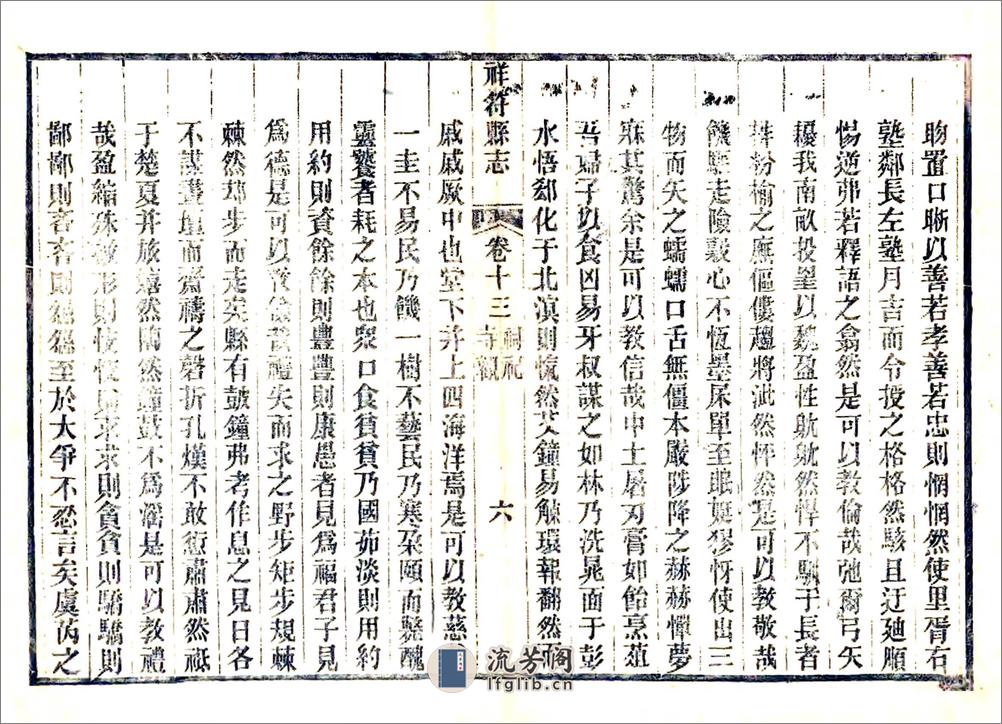 吻置口晰以善若孝善若忠則惘惘然使里胥右
塾鄰長左塾月吉而令授之格格然駭且迂廸順
惕逆弗若釋語之翕然是可以教倫哉弛爾弓矢
耰我南畝投壘以魏盈性鴥鴥然悍不馴于長者
粉榆之廡傴僂趨將泚然怦然是可以教敬哉
走險毅心不恆墨屎單至眠娗㺒伢使出三
物而矢之蠕蠕口舌無僵本嚴陟降之赫赫憚夢
寐其驚余是可以教信哉中土屠刃膏如飴烹菹
吾婦子以食凶易牙叔謀之如林乃洗晁面于彭
水悟鄰化于北滇則慌然艾鐘易觫環報翻然
祥符縣志
卷十三 祠祀 寺觀
六
戚戚厥中也堂下井上四海洋焉是可以教慈
一圭不易民乃饑一樹不藝民乃寒朶頤而毉醜
靈饕者耗之本也眾口食貧貧乃國茹淡則用約
用約則資餘餘則豐豐則康愚者見為福君子見
為德是可以教儉哉禮失而求之野步矩步規竦
竦然却步而走矣縣有鼓鐘弗考作息之見日各
不謀晝壇而齋禱之磬折孔熯不敢愆肅肅然祗
于楚夏井陔嬉然簡然鐘鼓不為瀆是可以教禮
哉盈縮殊形則忮忮則求求則貪貪則驕驕則
鄙鄙則吝吝則至於大爭不忍言矣虞芮之
流芳阁
lfglib.cn